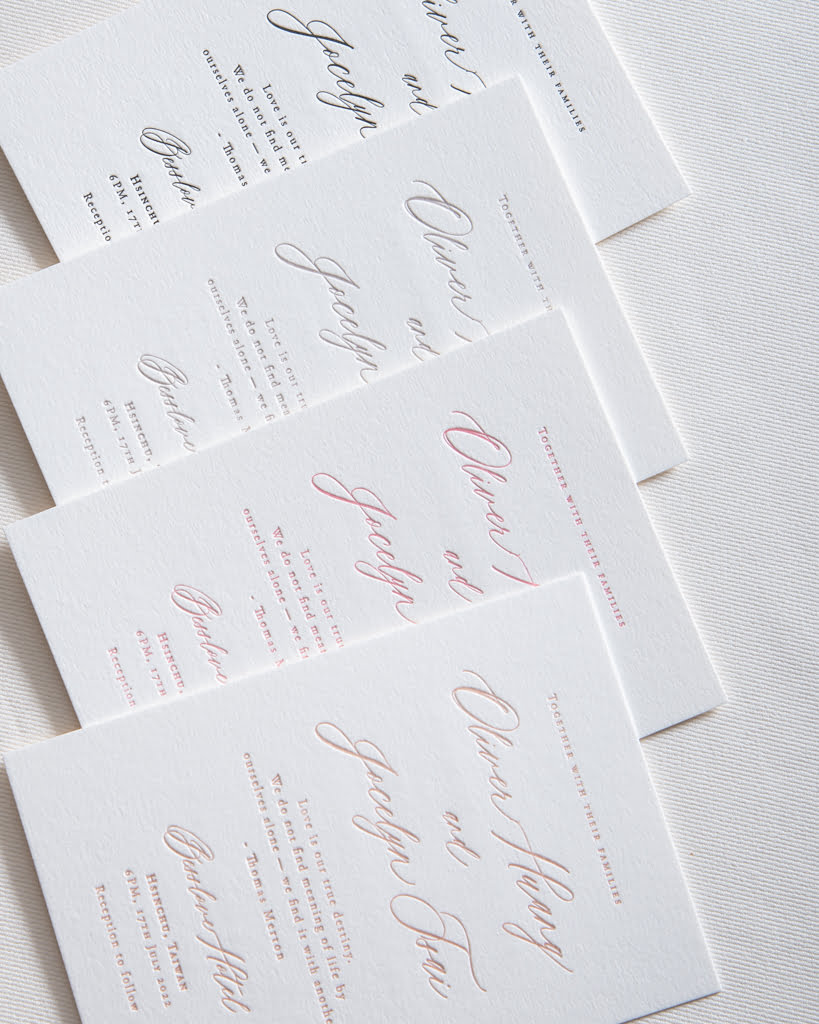 TOGETHER WITH THEIR FAMILIES
Oliver
and
Jocelyn
Love is our
We do not find
ourselves alone — we
- Thomas
HSINCHU,
6PM,
TOGETHER WITH
Oliver
and
Jocelyn
Love is our
We do not find
ourselves alone — we
- Thomas
HSINCHU,
6PM, 17th
Reception
TOGETHER WITH THEIR FAMILIES
Oliver
and
Jocelyn
Love is our
We do not find
ourselves alone — we
- Thomas
HSINCHU,
6PM, 17th
Reception
TOGETHER WITH THEIR FAMILIES
Oliver Huang
and
Jocelyn Tsai
Love is our true destiny.
We do not find meaning of life by
ourselves alone — we find it with
- Thomas Merton
Besslove Hotel
HSINCHU, TAIWAN
6PM, 17th JULY 2022
Reception to follow